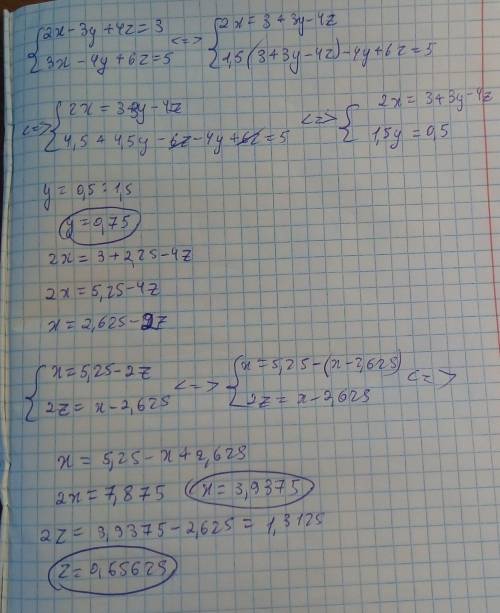 {2x-3y+4z=3 <=> {2x=3+3y-4z
{3x-4y+6z=5 {1,5(3+3y-4z)-4y+6z=5
<=> {2x=3+3y-4z <=> {2x=3+3y-4z
{4,5+4,5y-6z-4y+6z=5 {1,5y=0,5
y=0,5:1,5
y=0,75
2x=3+2,25-4z
2x=5,25-4z
x=2,625-2z
{x=5,25-2z <=> {x=5,25-(x-2,625) <=>
{2z=x-2,625 {2z=x-2,625
x=5,25-x+2,625
2x=7,875 x=3,9375
2z=3,9375-2,625=1,3125
z=0,65625